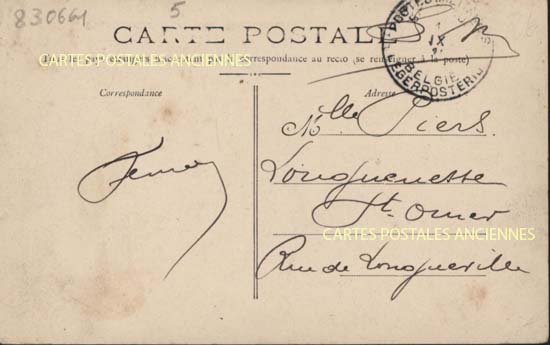 830664
5
CARTE POSTALE
CARTES POSTALES ANCIENNES
correspondance au recto (se renseigner à la poste)
Correspondance
Adresse
IX
BELGIË
LEGERPOSTERIJ
Mlle Piers
Longuenesse
St-Omer
CARTES POSTALES ANCIENNES
Rue de Longueville